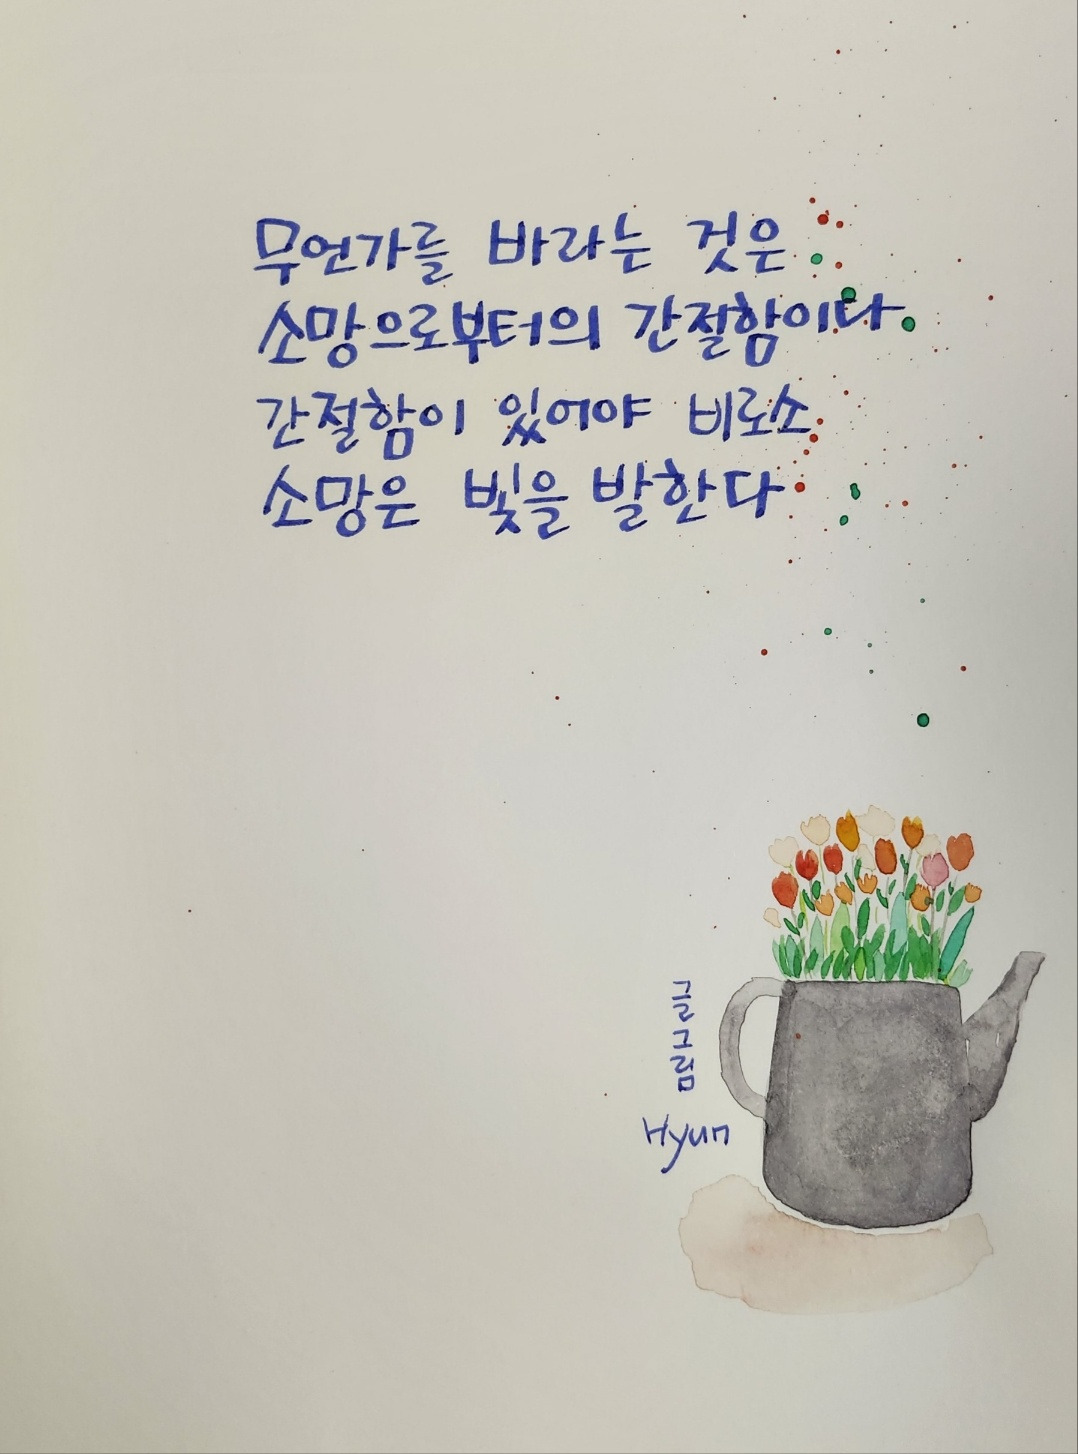 무언가를 바라는 것은
소망으로부터의 간절함이다
간절함이 있어야 비로소
소망은 빛을 발한다
글그림
Hyun